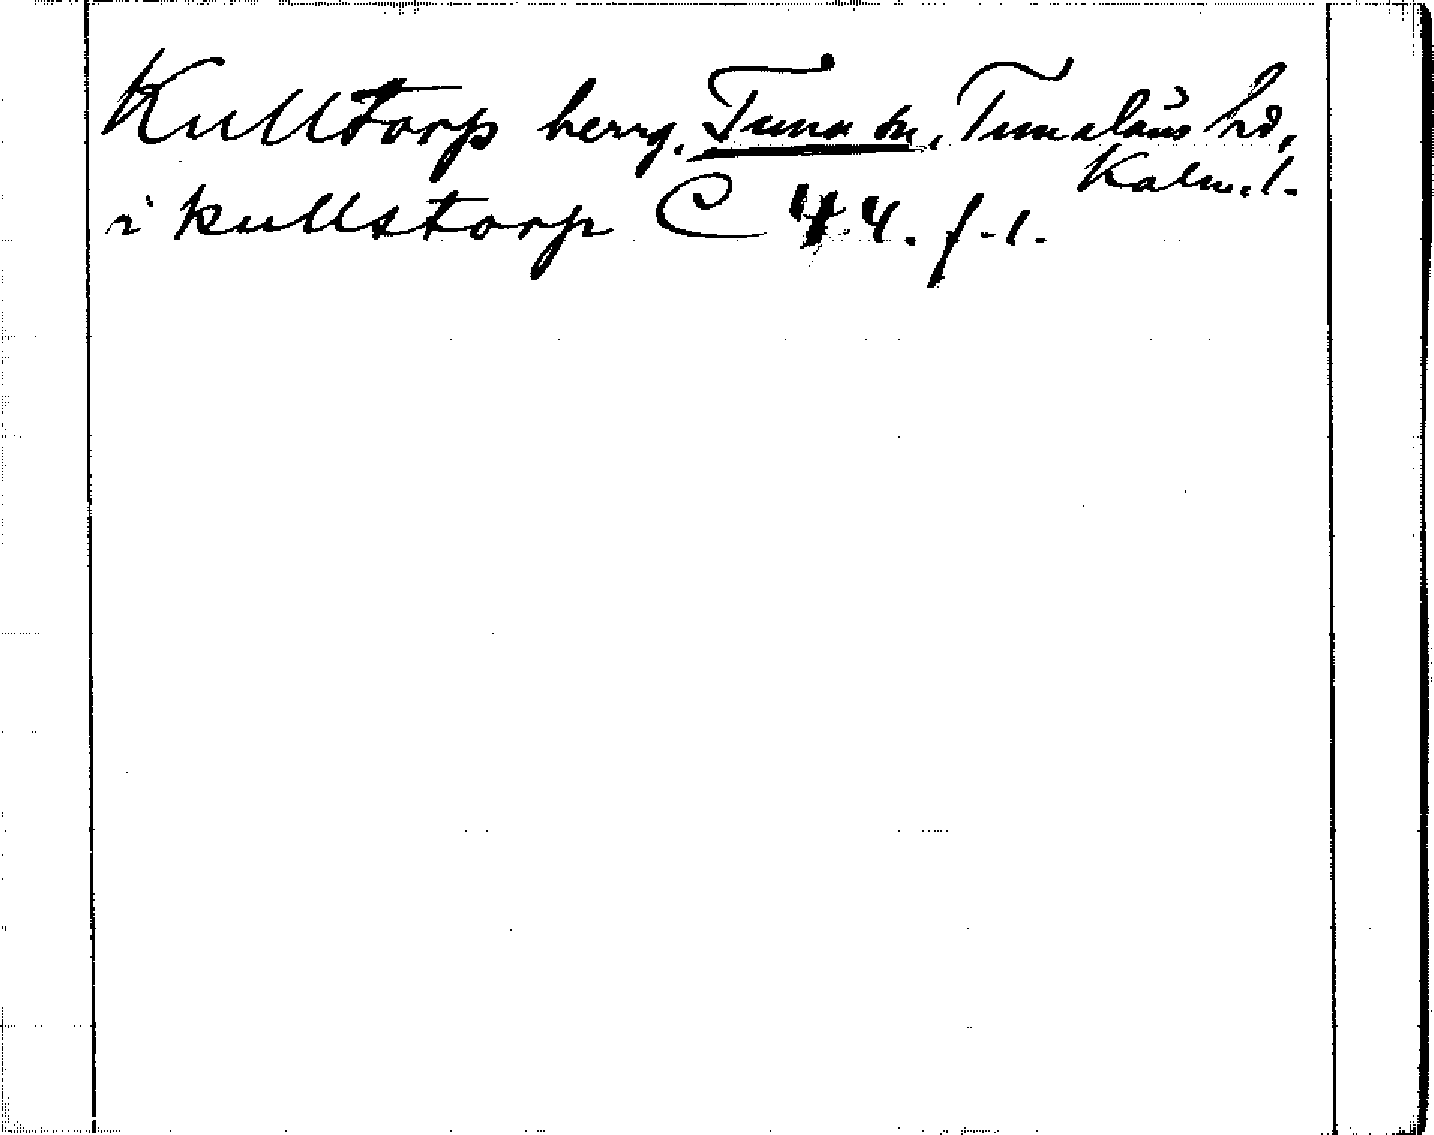 Kulltorp herrg. Tuna sn, Tunaläns hd,
Kalm. l.
i kullstorp C 44. f. 1.